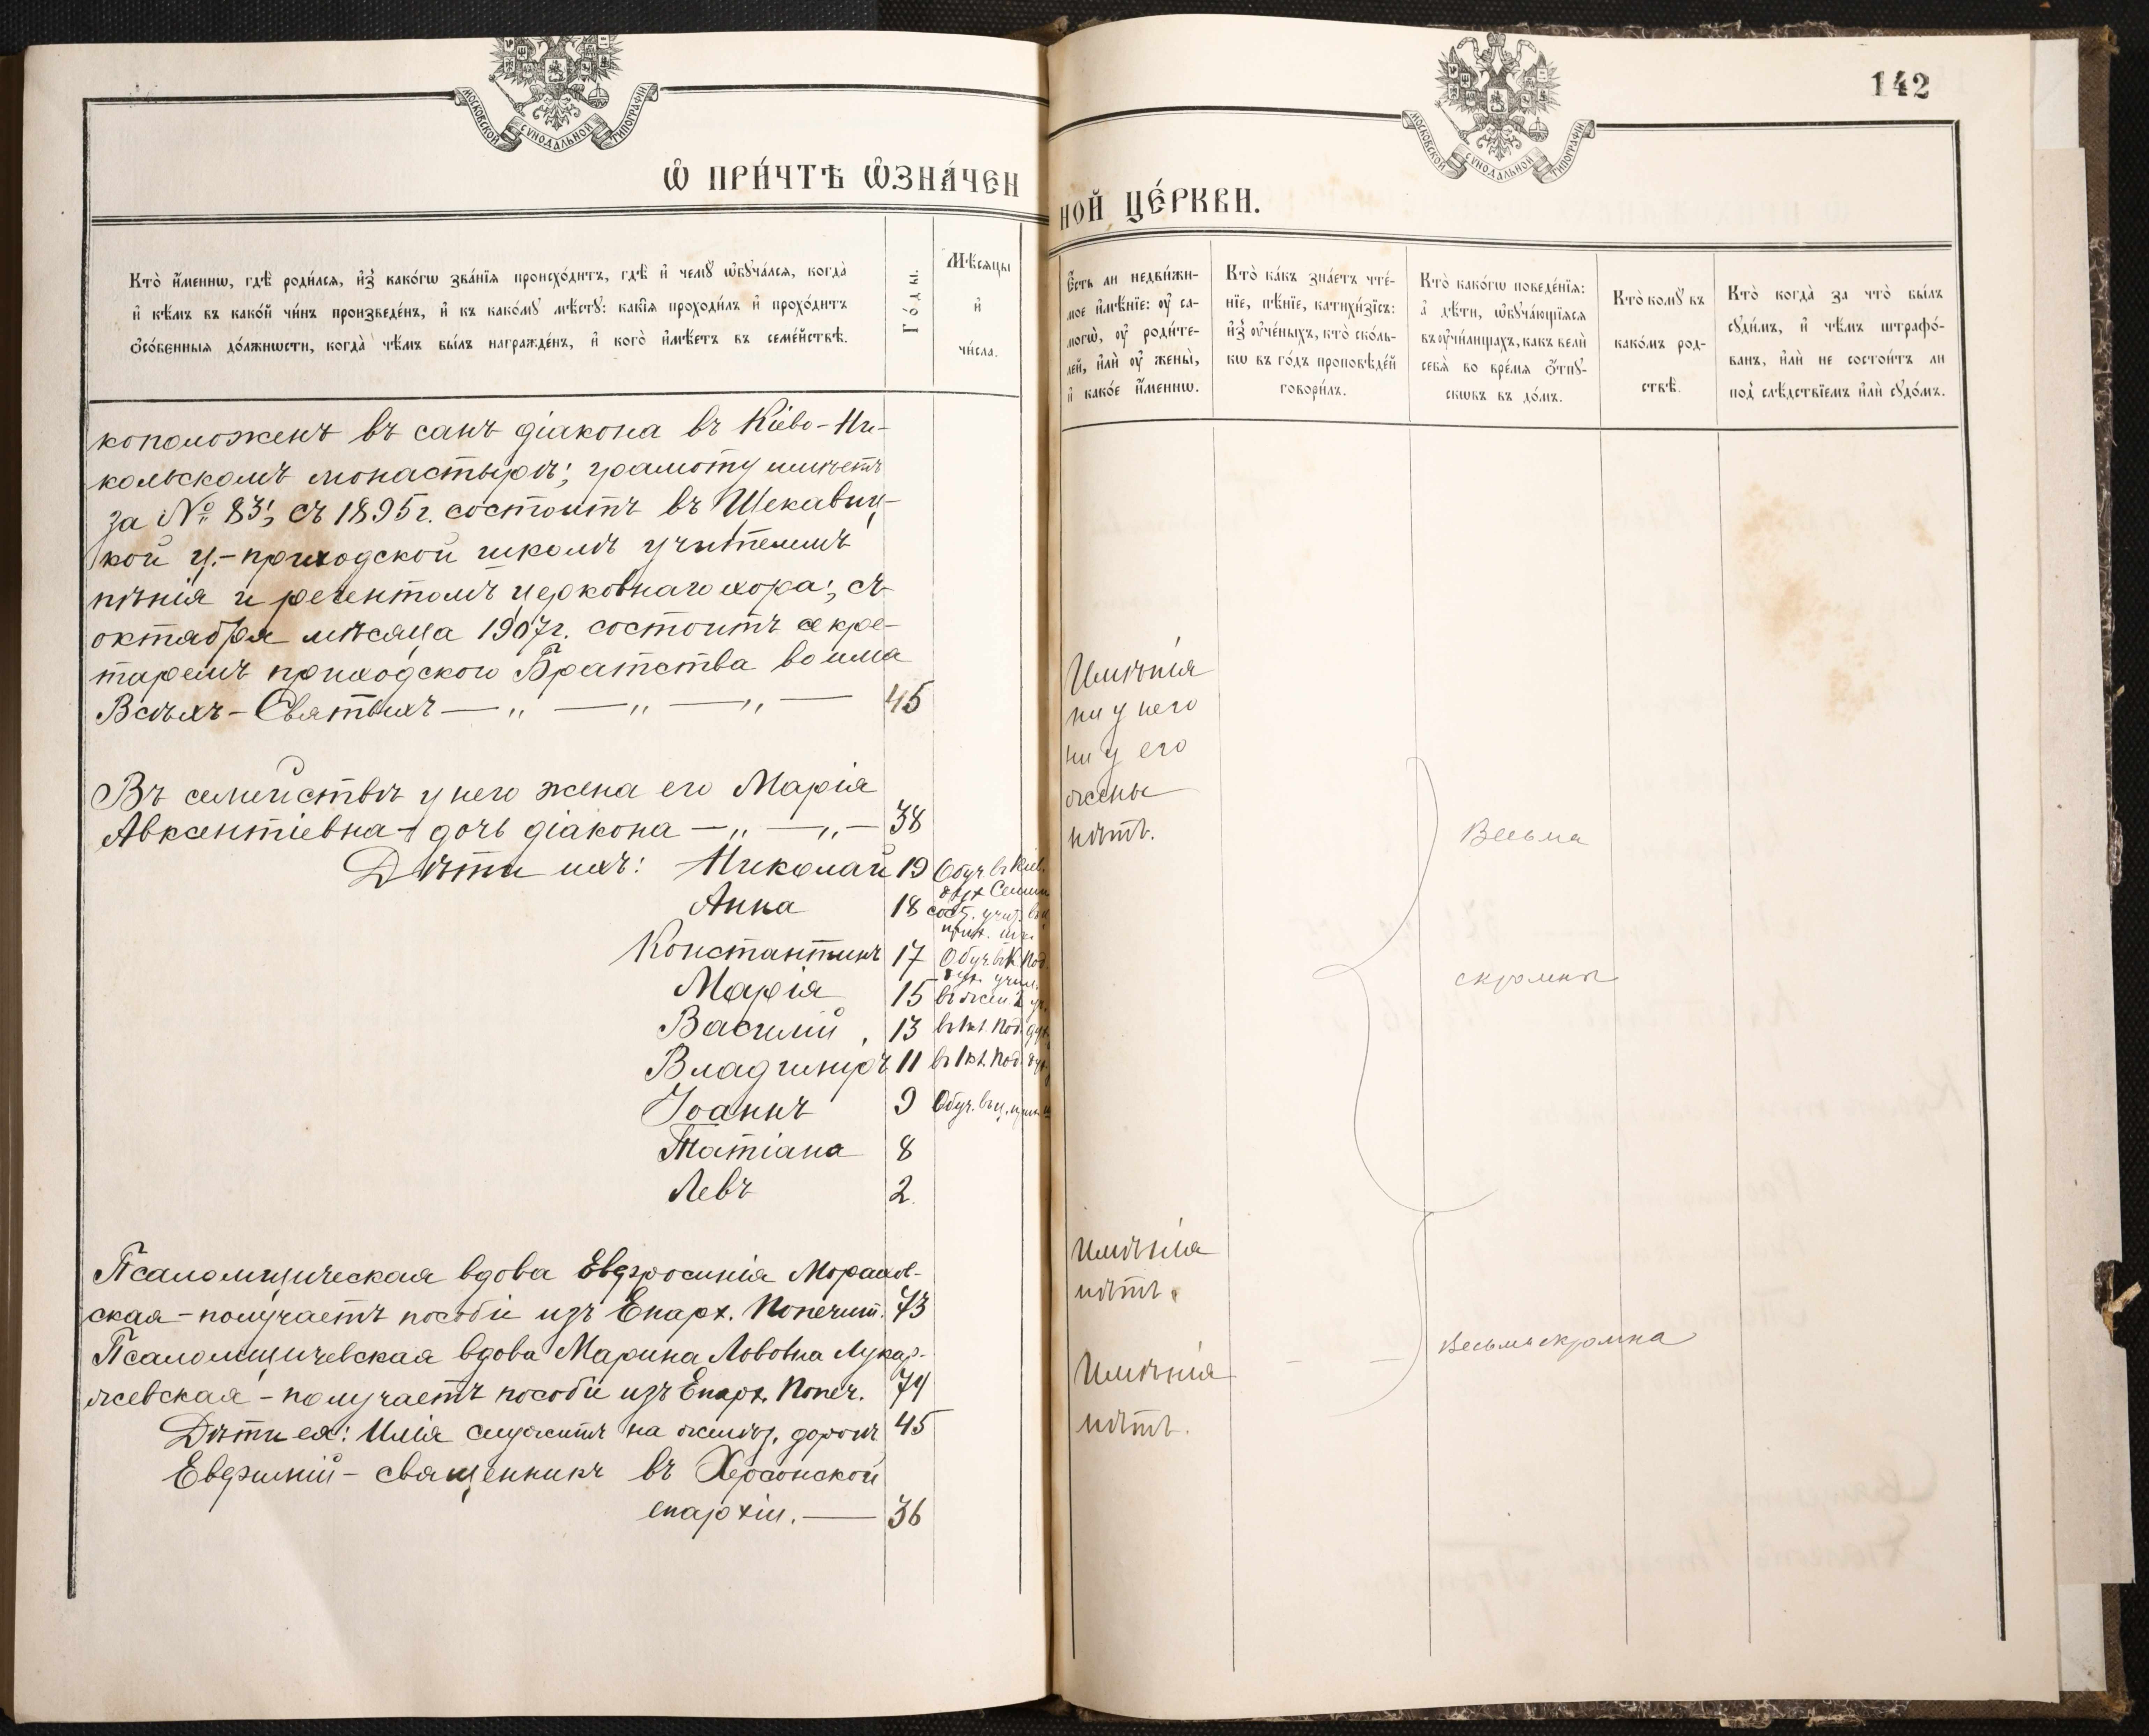 МОСКОВСКОЙ СѴНОДАЛЬНОЙ ТИПОГРАФІИ
Ѡ ПРИ́ЧТѢ ѠЗНА́ЧЕН
Кто̀ и҆́менно, гдѣ̀ роди́лся, и҆з̾ како́гѡ зва́нїя происхо́дитъ, гдѣ̀ и҆ чемꙋ̀ ѡ҆бꙋча́лся, когда̀
и҆ кѣ́мъ въ како́й чи́нъ произведе́нъ, и҆ къ како́мꙋ мѣ́стꙋ: какі́я проходи́лъ и҆ прохо́дитъ
ѻ҆со́бенныя до́лжности, когда̀ чѣ́мъ бы́лъ награжде́нъ, и҆ кого̀ и҆мѣ́етъ въ семе́йствѣ.
Го́ды.
Мѣ́сяцы
и҆
чи́сла.
коположенъ въ санъ діакона въ Кіево-Ни-
кольскомъ монастырѣ; грамоту имѣетъ
за № 83; съ 1895 г. состоитъ въ Щекавиц-
кой ц.-приходской школѣ учителемъ
пѣнія и регентомъ церковнаго хора; съ
октября мѣсяца 1907 г. состоитъ секре-
таремъ приходского Братства во имя
Всѣхъ-Святыхъ — „ — „ — „ — 45
Въ семействѣ у него жена его Марія
Авксентіевна - дочь діакона — „ — „ — 38
Дѣти ихъ: Николай 19 Обуч. въ Кіев.
дух. Семин
Анна 18 сост. учит. въ ц
прих. шк.
Константинъ 17 Обуч. въ К. Под.
дух. учил.
Марія 15
Василій 13 въ 1 кл. Под. дух.
Владиміръ 11 въ 1 кл. Под. дух.
Іоаннъ 9 Обуч. въ ц. прих.
Татіана 8
Левъ 2.
Псаломщическая вдова Евфросинія Морахов-
ская - получаетъ пособіе изъ Епарх. Попечит. 73
Псаломщичевская вдова Марина Львовна Лукар-
жевская - получаетъ пособіе изъ Епарх. Попеч. 74
Дѣти ея: Илія служитъ на желѣз. дорогѣ 45
Евфимій - священникъ въ Херсонской
епархіи. — 36
142
МОСКОВСКОЙ СѴНОДАЛЬНОЙ ТИПОГРАФІИ
НОЙ ЦЕ́РКВИ.
Е҆́сть ли недви́жи-
мое и҆мѣ́нїе: оу҆ са-
могѡ̀, оу҆ роди́те-
лей, и҆лѝ оу҆ жены̀,
и҆ како́е и҆́менно.
Кто̀ ка́къ зна́етъ чте́-
нїе, пѣ́нїе, катихи́зїсъ:
и҆з̾ оу҆че́ныхъ, кто̀ ско́ль-
кѡ въ го́дъ проповѣ́дей
говори́лъ.
Кто̀ како́гѡ поведе́нїя:
а҆ дѣ́ти, ѡ҆бꙋча́ющїяся
въ оу҆чи́лищахъ, какъ велѝ
себѧ̀ во вре́мя ѿпꙋ-
скѡвъ въ до́мъ.
Кто̀ комꙋ̀ въ
како́мъ род-
ствѣ̀.
Кто̀ когда̀ за что̀ бы́лъ
сꙋди́мъ, и҆ чѣ́мъ штрафо́-
ванъ, и҆лѝ не состои́тъ ли
под̾ слѣ́дствїемъ и҆лѝ сꙋдо́мъ.
Имѣнія
ни у него
ни у его
жены
нѣтъ.
Весьма
скромны
Имѣнія
нѣтъ.
Весьма скромна
Имѣнія
нѣтъ.